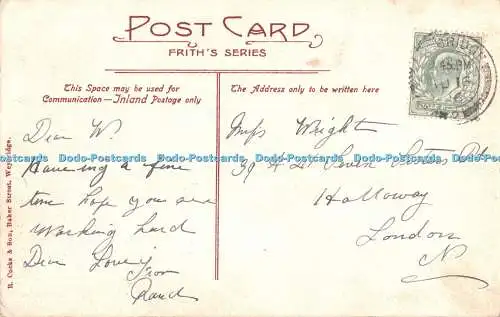 POST CARD
FRITH'S SERIES
This Space may be used for
Communication—Inland Postage only
The Address only to be written here
Dear W.
Having a fine
time hope you are
Working hard
Dear Love
from
Miss Wright
39
Seven
Rd
Holloway
London
N
R. Cooke & Son, Baker Street, Weybridge.
Dodo-Postcards Dodo-Postcards Dodo-Postcards Dodo-Postcards Dodo-Postcards